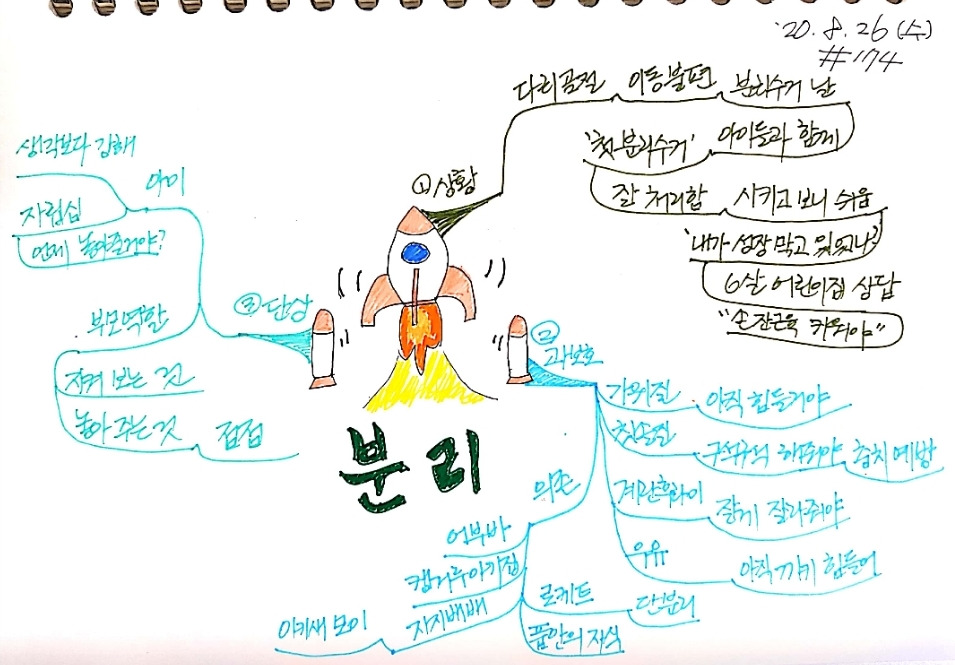 '20. 8. 26 (수)
#174
분리
① 상황
다리골절 이동불편 분리수거 날
'첫 분리수거' 아이들과 함께
잘 처리함 시키고 보니 쉬움
'내가 성장 막고 있었나?'
6살 어린이집 상담
"손 잔근육 키워야"
② 과보호
가위질 아직 힘들거야
칫솔질 구석구석 해줘야 충치 예방
계란후라이 잘게 잘라줘야
우유 아직 까기 힘들어
의존
어부바
캥거루 아기집
자지배배
아기새 모이
로케트 단분리
품안의 자식
③ 단상
아이
생각보다 강해
자립심
언제 놓아줄거야?
부모역할
지켜 보는 것
놓아 주는 것 접점